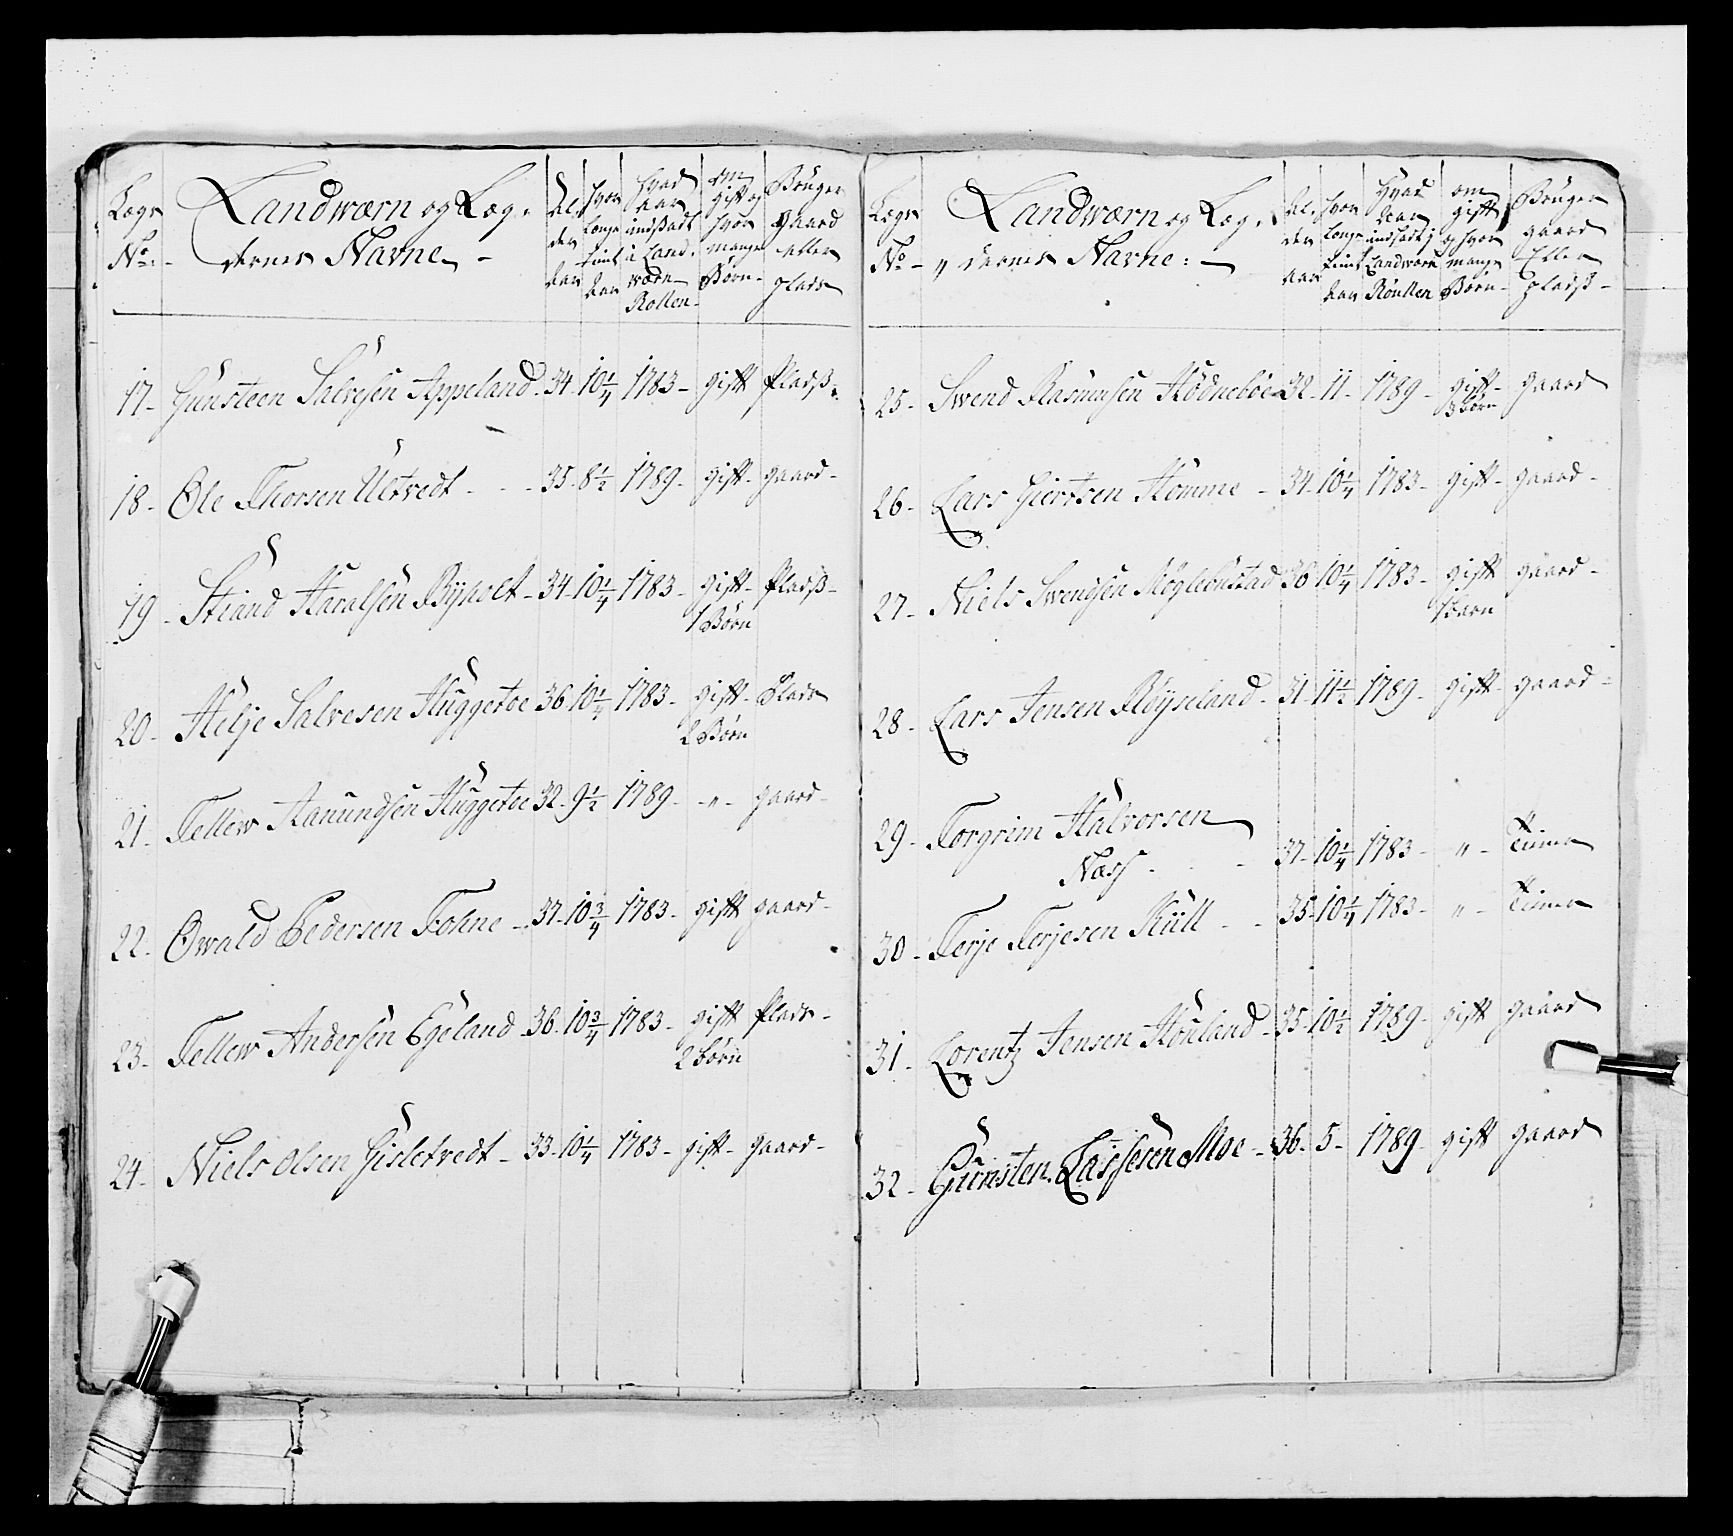 Lægs No. - Landwærn og Læg- dernes Navne - Al- der Aar hvor Længe tient Aar hvad Aar indsadt i Land- wærn Rollen - om gift og hvor mange Børn - Bruger Gaard eller plads
17 - Gunsteen Salvesen Appeland - 34 - 10 1/4 1783 - gift pladß -
18 - Ole Thorsen Ultvedt - - - 35 - 8 1/2 1789 - gift - gaard -
19 - Haralsen Byholt - 34 - 10 1/4 1783 - gift - pladß -
1 Børn
20 - Helje Salvesen Huggetoe 36 - 10 1/4 1783 - gift - Plads
2 Børn
21 - Tellew Aanundsen Huggetoe 32 - 9 1/2 1789 - - " - gaard -
22 - Oswald Pedersen Fohne - 37 - 10 3/4 1783 - gift gaard -
23 - Tellew Andersen Egeland 36 - 10 3/4 1783 - gift plads -
2 børn
24 - Niels Olsen Gisletvedt - 33 - 10 1/4 1783 - gift - gaard -
Lægs No - Landwærn og Læg- " dernes Navne : - Al- der Aar hvor Længe tient Aar Hvad Aar indsadt i Landwærn Roullen om gift og hvor mange Børn - Bruger gaard Eller pladß -
25 - Swend Rasmusen Hødnebøe 32 - 11 - 1789 - gift - gaard
3 børn
26 - Lars Giertsen Homme - 34 - 10 1/4 1783 - gift - gaard -
27 - Niels Swendsen 36 10 1/4 1783 - gift gaard -
1 barn
28 - Lars Jensen Røyseland - 31 - 11 1/2 1789 - gift - gaard -
29 - Torgrim Halvorsen
Næss - - 37 - 10 1/4 1783 - " - Tiener
30 - Terje Terjesen - - 35 - 10 1/4 1783 - " - Tiener
31 - Lorentz Jensen Houland - 35 - 10 1/2 1789 - gift gaard
32 - Gunsten Lassesen Moe - 36 - 5 - 1789 - gift gaard